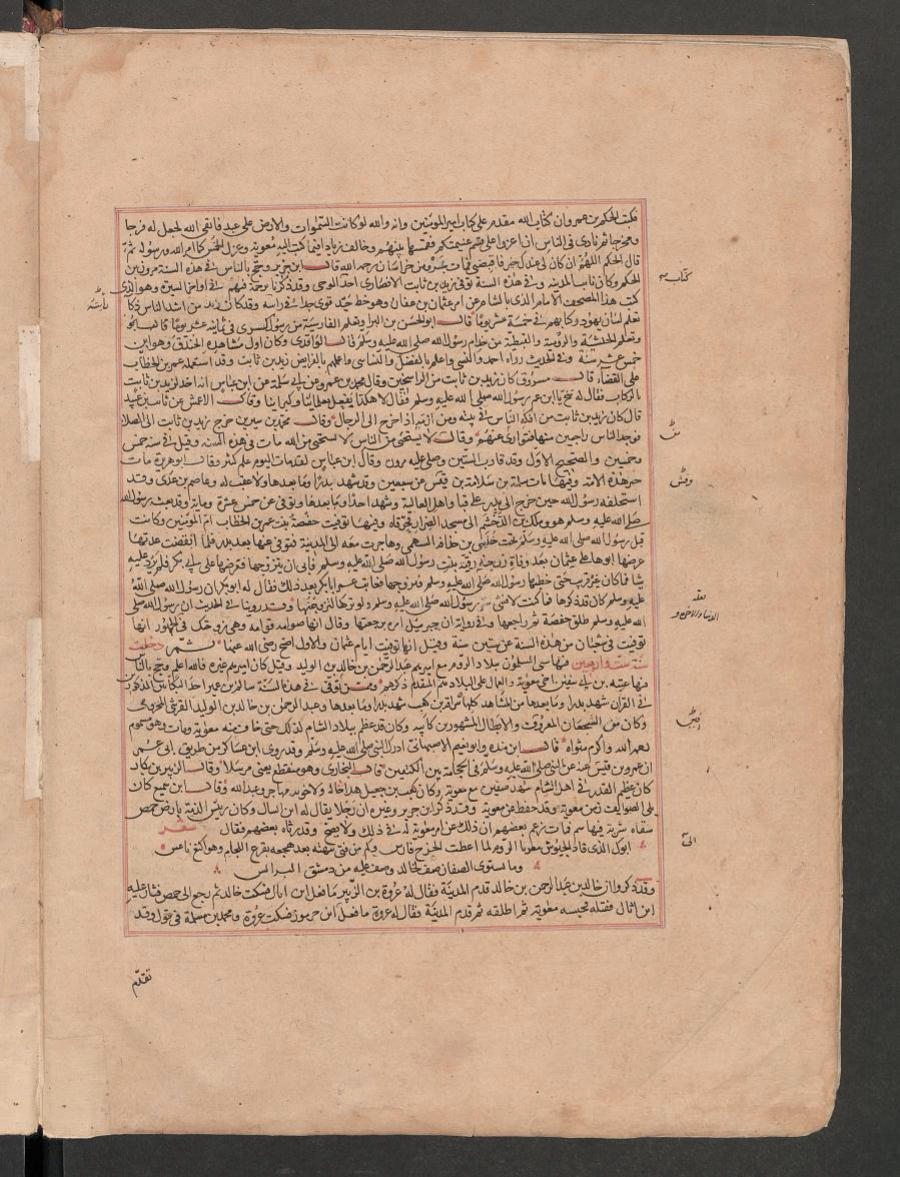 فكتب الحكم بن عمرو ان كتاب الله مقدم على كتاب امير المومنين وانه والله لو كانت السموات والارض على عبد فاتقى الله لجعل له فرجا
ومخرجا ثم نادى فى الناس ان اغدوا على غنيمتكم فقسمها بينهم وخالف زيادا فيما كتب اليه معوية وعزل الخمس كما امر الله ورسوله ثم
قال الحكم اللهم ان كان لى عندك خير فاقبضنى فمات بمرو من خراسان رحمه الله قال ابن جرير وحج بالناس فى هذه السنة مرون بن
الحكم وكان نائب المدينة وفى هذه السنة توفى زيد بن ثابت الانصارى احد كتاب الوحى وقد ذكرنا ترجمته فيهم فى اواخر السيرة وهو الذى
كتب هذا المصحف الامام الذى بالشام عن امر عثمان بن عفان وهو خط جيد قوى جدا فيما رأيته وقد كان زيد من اشد الناس ذكا
تعلم لسان يهود وكتابهم فى خمسة عشر يوما قال ابو الحسن بن البرا وتعلم الفارسية من رسول كسرى فى ثمانية عشر يوما قالـ ابو
وتعلم الحبشية والرومية والقبطية من خدام رسول الله صلى الله عليه وسلم قال الواقدى وكان اول مشاهده الخندق وهو ابن
خمس عشر سنة وفى الحديث رواه احمد والنسى واعلمهم بالفرايض زيد بن ثابت وقد استعمله عمر بن الخطاب
على القضاء قال مسروق كان زيد بن ثابت من الراسخين وقال محمد بن عمرو عن ابى سلمة عن ابن عباس انه اخذ لزيد بن ثابت
بالركاب فقال له تنح يا ابن عم رسول الله صلى الله عليه وسلم فقال لا هكذا يفعل بعلمائنا وكبراينا وقال الاعمش عن ثابت بن عبيد
قال كان زيد بن ثابت من افكه الناس فى بيته ومن ازمته اذا خرج الى الرجال وقال محمد بن سيرين خرج زيد بن ثابت الى الصلا
فوجد الناس راجعين منها فتوارى عنهم وقال من لا يستحى من الناس لا يستحى من الله مات فى هذه السنة وقيل فى سنة خمس
وخمسين والصحيح الاول وقد قارب الستين وصلى عليه مرون وقال ابن عباس لقد مات اليوم علم كثير وقال ابو هريرة مات
حبر هذه الامة وفيها مات سلمة بن سلامة بن وقش عن سبعين وقد شهد بدرا وما بعدها ولا عقب له وعاصم بن عدى وقد
استخلفه رسول الله حين خرج الى بدر على قبا واهل العالية وشهد احدا وما بعدها وتوفى عن خمس عشرة وماية وقد بعثه رسول الله
صلى الله عليه وسلم هو ومالك بن الدخشم الى مسجد الضرار فحرقاه وفيها توفيت حفصة بنت عمر بن الخطاب ام المومنين وكانت
قبل رسول الله صلى الله عليه وسلم تحت خنيس بن حذافة السهمى وهاجرت معه الى المدينة فتوفى عنها بعد بدر فلما انقضت عدتها
عرضها ابوها على عثمان بعد وفاة زوجته رقية بنت رسول الله صلى الله عليه وسلم فابى ان يتزوجها فعرضها على ابى بكر فلم يرد عليه
شيا فما كان عن قريب حتى خطبها رسول الله صلى الله عليه وسلم فتزوجها فعاتب عمر ابا بكر بعد ذلك فقال له ابو بكر ان رسول الله صلى الله
عليه وسلم كان قد ذكرها فما كنت لافشى سر رسول الله صلى الله عليه وسلم ولو تركها لتزوجتها وقد روينا فى الحديث ان رسول الله صلى
الله عليه وسلم طلق حفصة ثم راجعها وفى رواية ان جبريل امره برجعتها وقال انها صوامة قوامة وهى زوجتك فى الجنة انها
توفيت فى شعبان من هذه السنة عن ستين سنة وقيل انها توفيت ايام عثمان والاول اصح رضى الله عنها ثم دخلت
سنة ست واربعين فيها شتى المسلمون ببلاد الروم مع اميرهم عبد الرحمن بن خالد بن الوليد وقيل كان اميرهم غيره فالله اعلم وحج بالناس
فيها عتبة بن ابى سفين اخى معوية والعمال على البلاد هم المتقدم ذكرهم وممن توفى فى هذه السنة سالم بن عمير احد البكائين المذكورين
فى القران شهد بدرا وما بعدها من المشاهد كلها سراقة بن كعب شهد بدرا وما بعدها وعبد الرحمن بن خالد بن الوليد القرشى المخزومى
وكان من الشجعان المعروفين والابطال المشهورين كابيه وكان قد عظم ببلاد الشام لذلك حتى خاف منه معوية ومات وهو مسموم
رحمه الله واكرم مثواه قال ابن منده وابو نعيم الاصبهانى ادرك النبى صلى الله عليه وسلم وقد روى ابن عساكر من طريق ابى عمر
ان عمرو بن قيس عنه عن النبى صلى الله عليه وسلم فى الحجامة بين الكتفين قال البخارى وهو منقطع يعنى مرسلا وقال الزبير بن بكار
كان عظيم القدر فى اهل الشام شهد صفين مع معوية وكان كعب بن جعيل مداحا له ولاخويه مهاجر وعبد الله وقال ابن سميع كان
يلى الصوايف زمن معوية وقد حفظ عن معوية وقد ذكر ابن جرير وغيره ان رجلا يقال له ابن اثال وكان رييس الذمة بارض حمص
سقاه شربة فيها سم فمات وزعم بعضهم ان ذلك عن امر معوية له فى ذلك ولا يصح وقد رثاه بعضهم فقال شعر
ابوك الذى قاد الجيوش مغربا الى الروم لما اعطت الخرج فارس وكم من فتى نبهته بعد هجعه بقرع اللجام وهو اكتع ناعس
وما يستوى الصفان صف لخالد وصف عليه من دمشق البرانس
وقد ذكروا ان خالد بن عبد الرحمن بن خالد قدم المدينة فقال له عروة بن الزبير ما فعل ابن اثال فسكت خالد ثم رجع الى حمص فثار عليه
ابن اثال فقتله فحبسه معوية ثم اطلقه ثم قدم المدينة فقال له عروة ما فعل ابن جرموز فسكت عروة ومحمد بن مسلمة فى قول وقد
تقدم